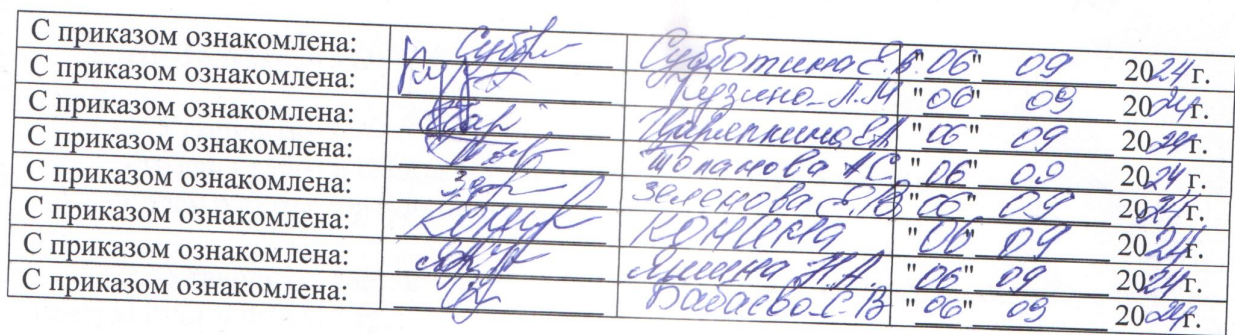 С приказом ознакомлена: Субботина Е.В. "06" 09 2024г.
С приказом ознакомлена: Гузино Л.М "06" 09 2024г.
С приказом ознакомлена: "06" 09 2024г.
С приказом ознакомлена: А.С. "06" 09 2024г.
С приказом ознакомлена: Зеленова Е.В "06" 09 2024г.
С приказом ознакомлена: Конина "06" 09 2024г.
С приказом ознакомлена: Н.А. "06" 09 2024г.
С приказом ознакомлена: Бабаево С.В "06" 09 2024г.